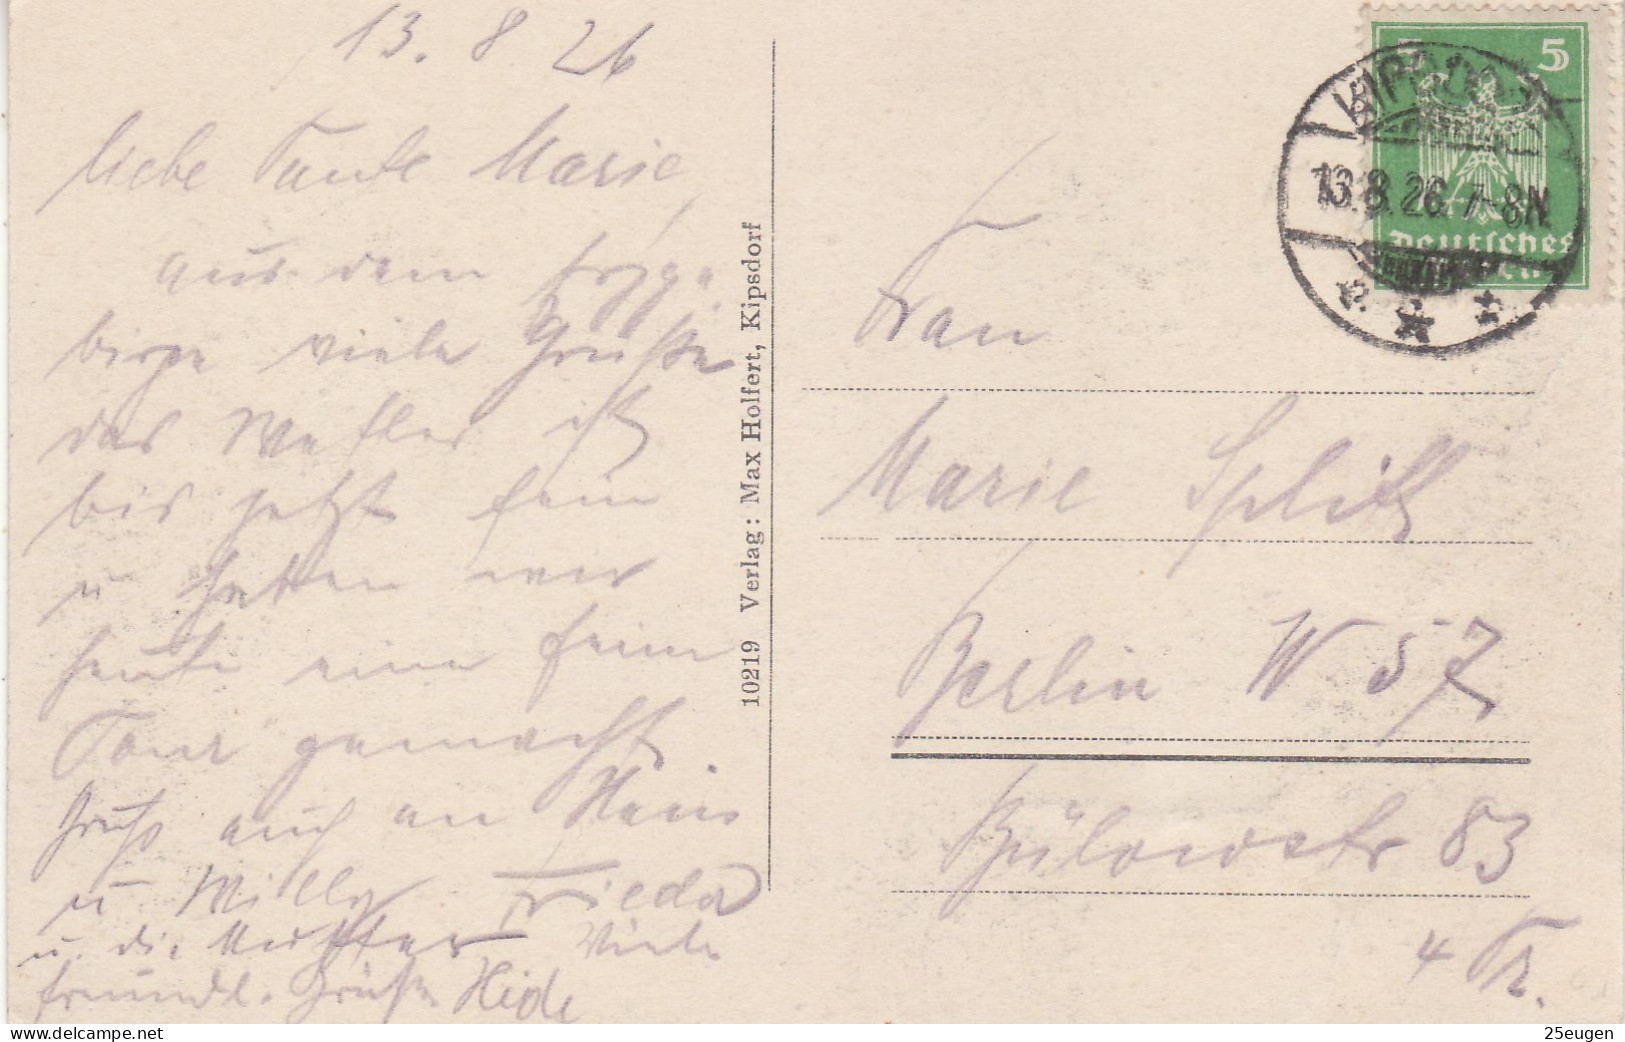 13. 8 26
liebe Tante Marie
aus dem Erzge
birge viele Grüße
das Wetter ist
bis jetzt fein
u haben wir
heute eine feine
Tour gemacht
Gruß auch an Hans
u. Willy Frieda
u. die Mutter Viele
freundl. Grüße Hide
10219 Verlag: Max Holfert, Kipsdorf
5 5
KIPSDORF
13.8.26. 7-8N.
Deutsches
Frau
Marie Splitt
Berlin W 57
Bülowstr 83
4 Tr.
delcampe.net
25eugen